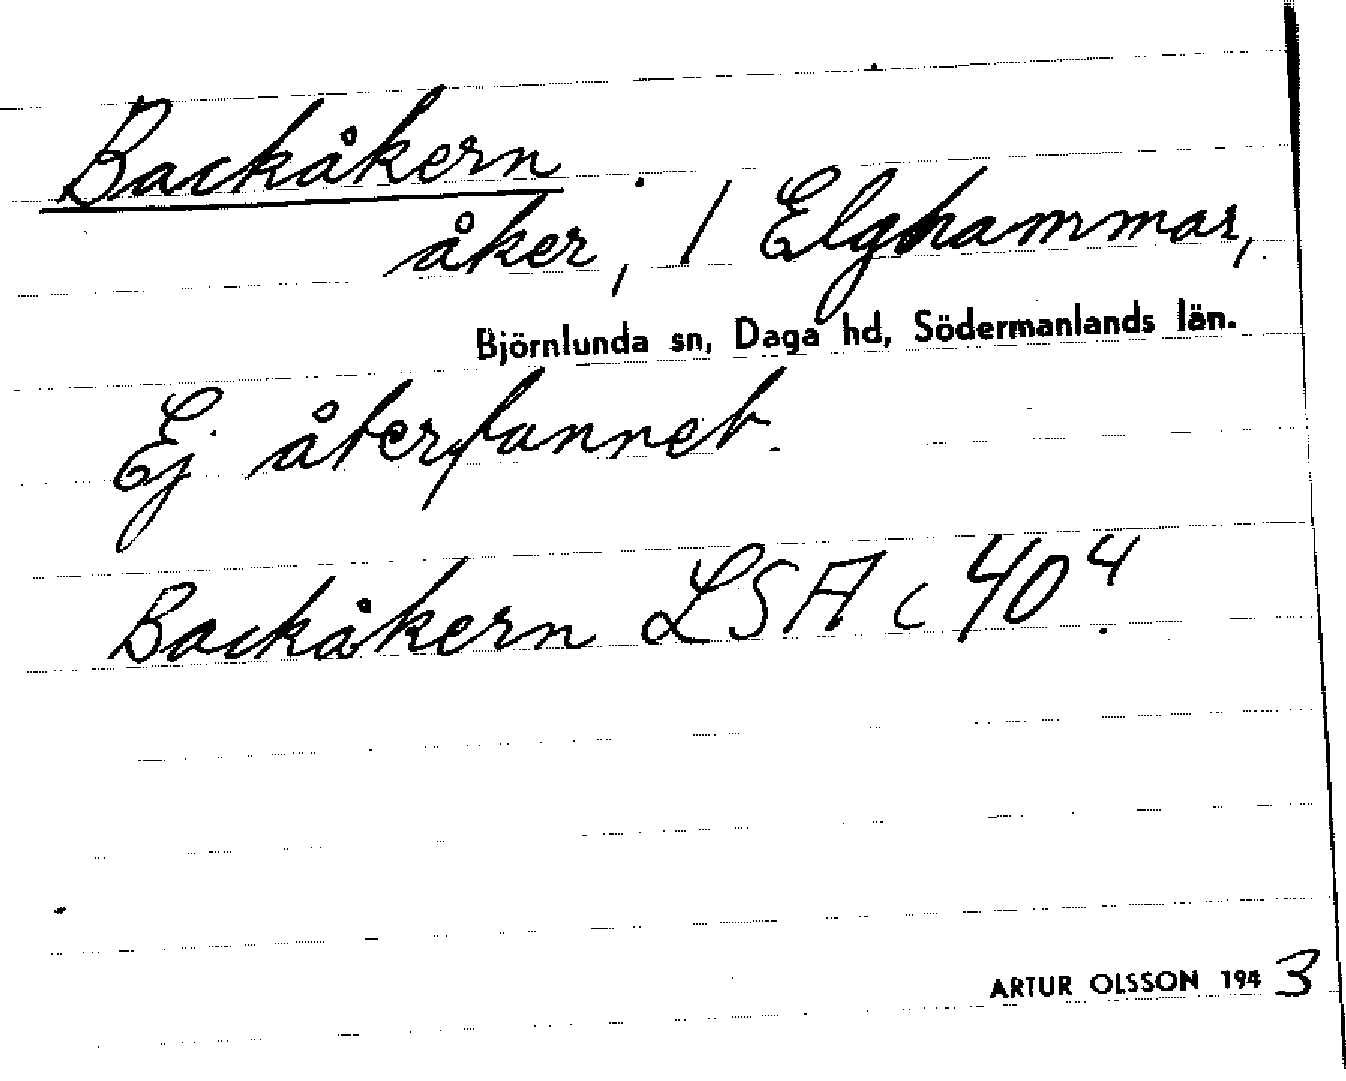 Backåkern
åker, / Elghammar,
Björnlunda sn, Daga hd, Södermanlands län.
Ej återfunnet.
Backåkern LSA c 40⁴.
ARTUR OLSSON 1943